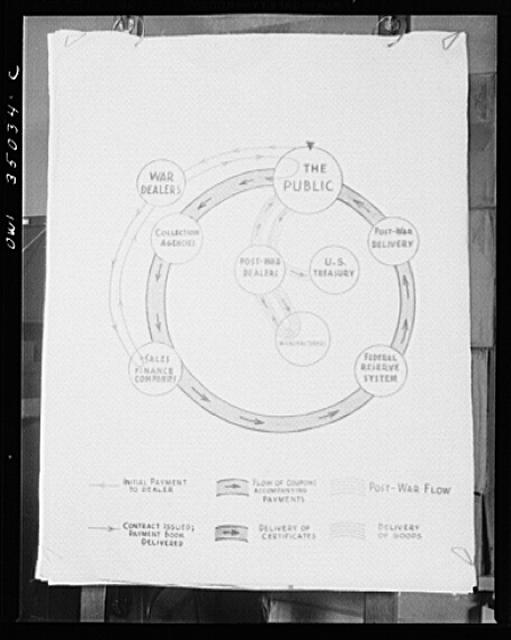 OWI 35034-C
WAR
DEALERS
THE
PUBLIC
COLLECTION
AGENCIES
POST-WAR
DELIVERY
POST-WAR
DEALERS
U.S.
TREASURY
MANUFACTURERS
SALES
FINANCE
COMPANIES
FEDERAL
RESERVE
SYSTEM
INITIAL PAYMENT
TO DEALER
FLOW OF COUPONS
ACCOMPANYING
PAYMENTS
POST-WAR FLOW
CONTRACT ISSUED;
PAYMENT BOOK
DELIVERED
DELIVERY OF
CERTIFICATES
DELIVERY
OF GOODS